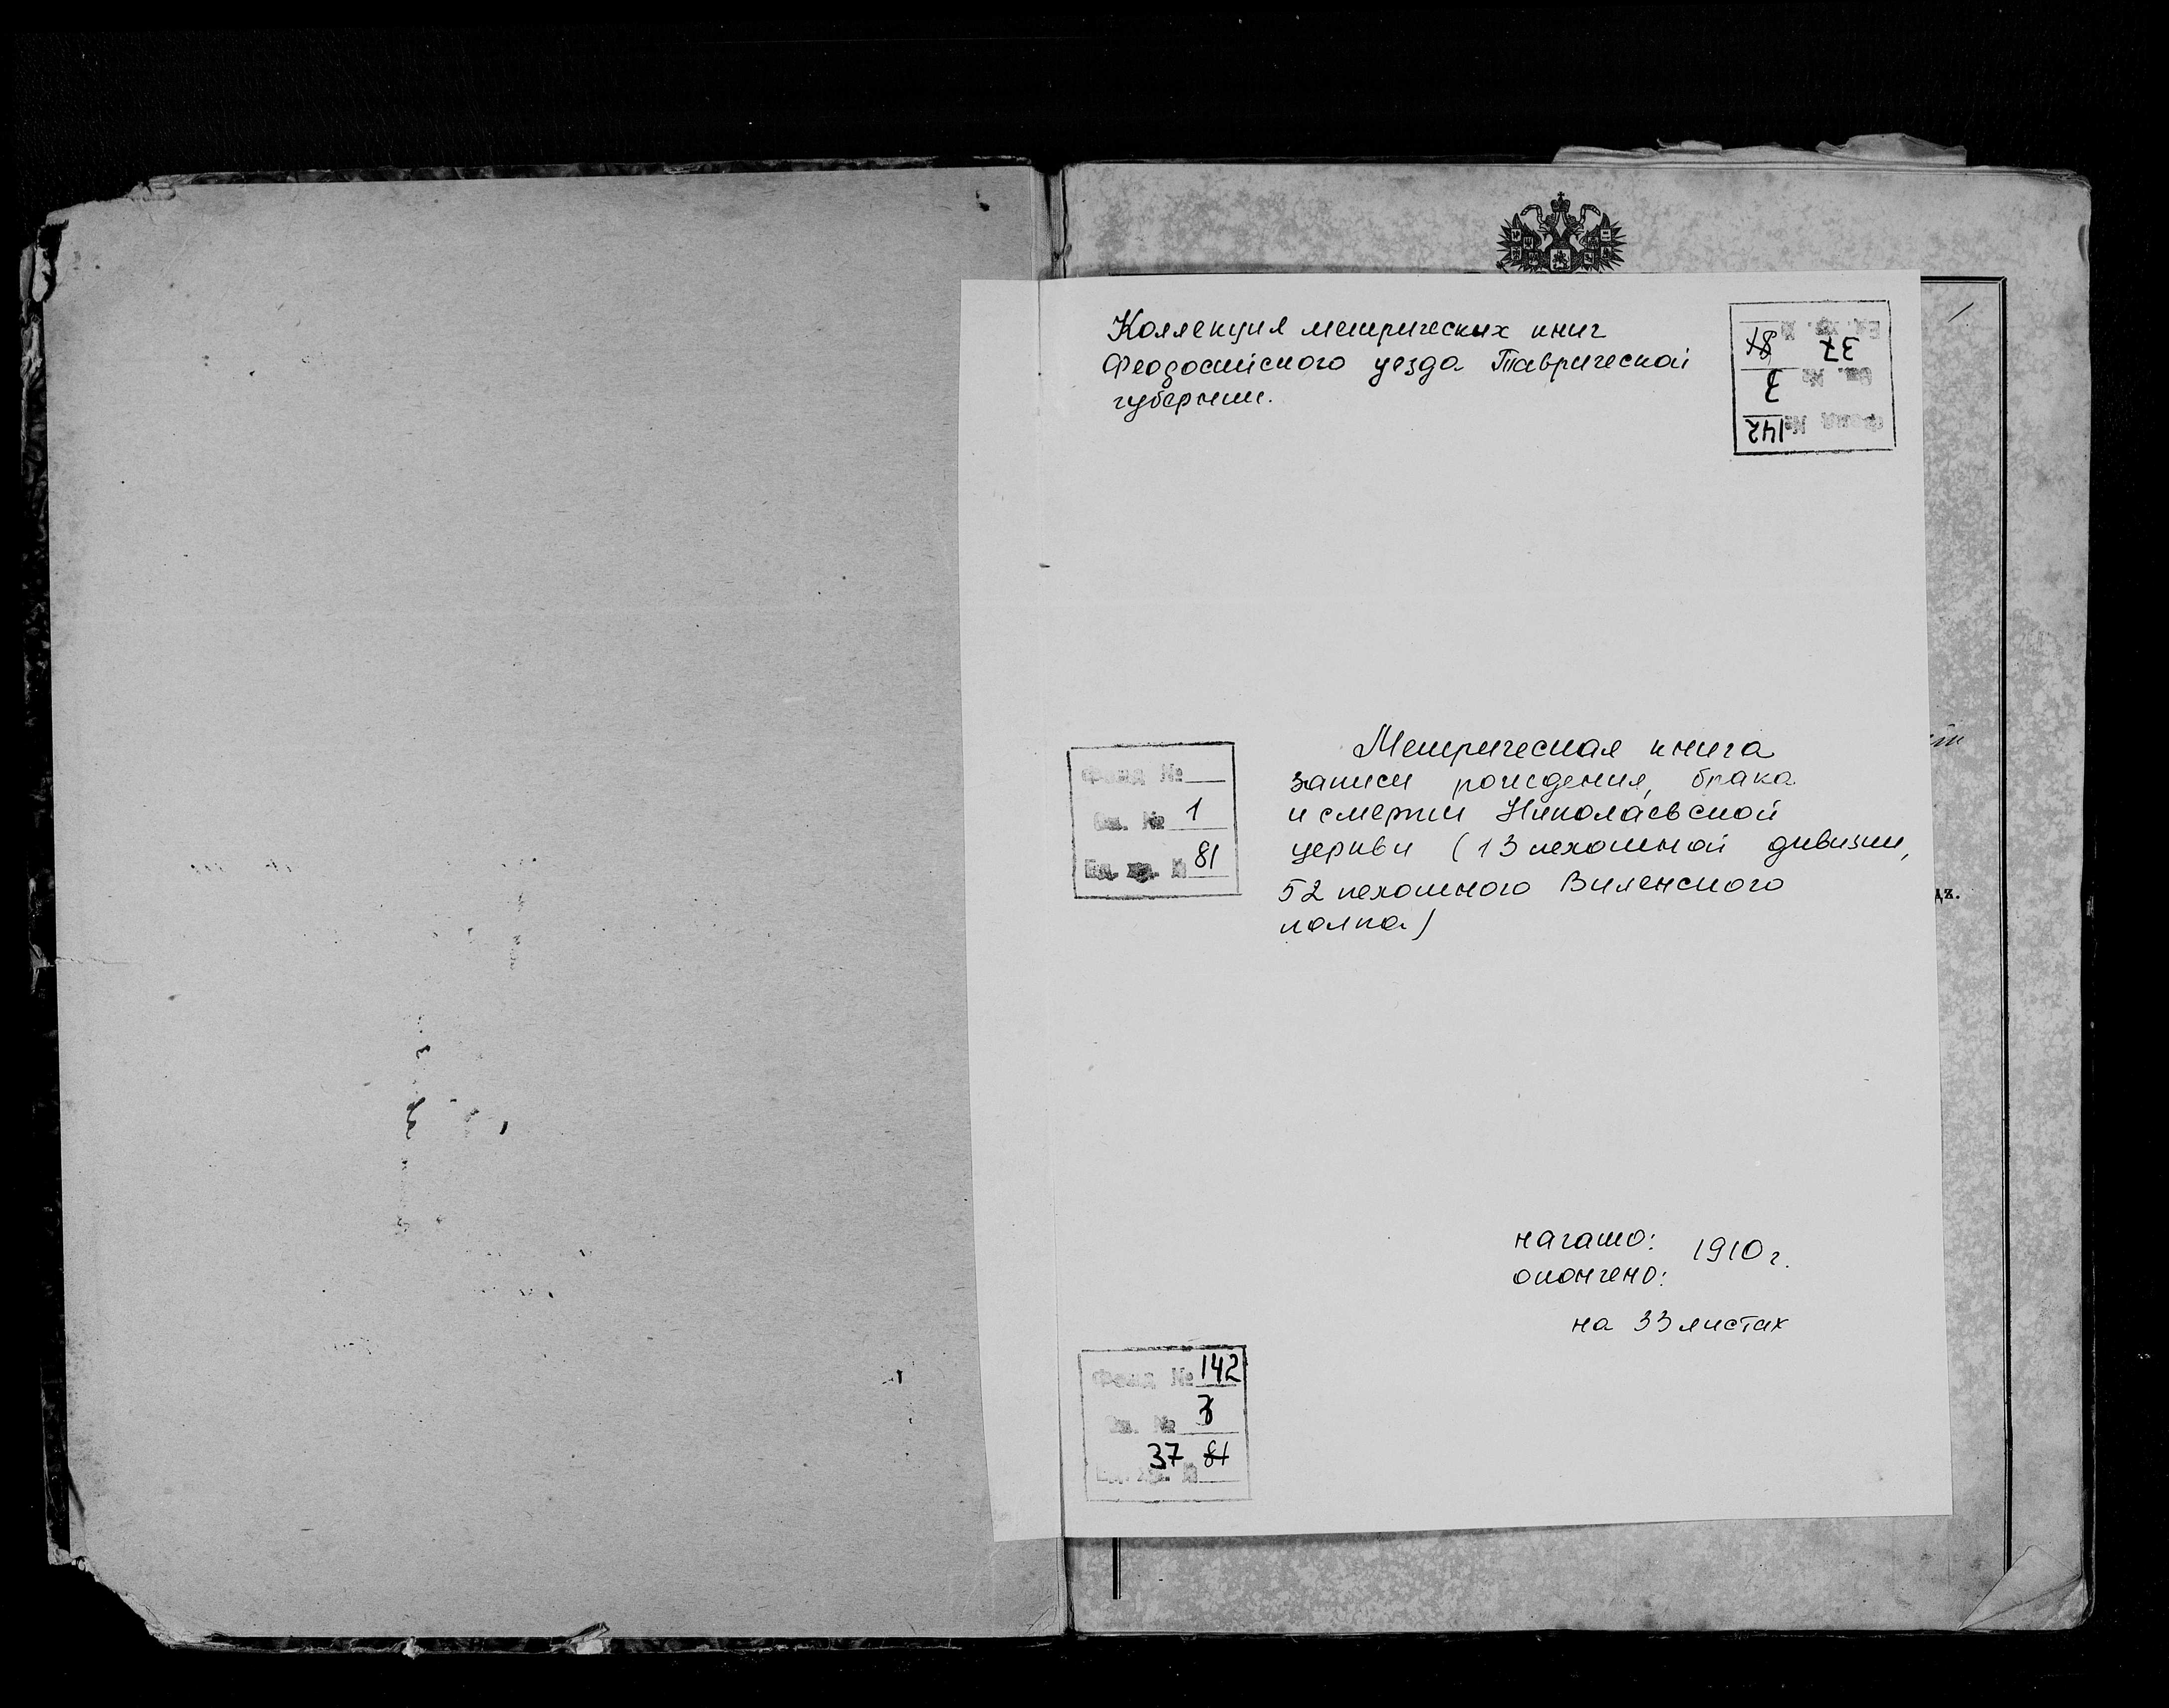 Коллекция метрических книг
Феодосийского уезда Таврической
губернии.
Ед. хр. № 37 81
Оп. № 3
Фонд № 142
Метрическая книга
записи рождения, брака
и смерти Николаевской
церкви (13 пехотной дивизии,
52 пехотного Виленского
полка)
Фонд №
Оп. № 1
Ед. хр. № 81
начато: 1910 г.
окончено:
на 33 листах
Фонд № 142
Оп. № 3
37 81
Ед. хр. №
дъ.